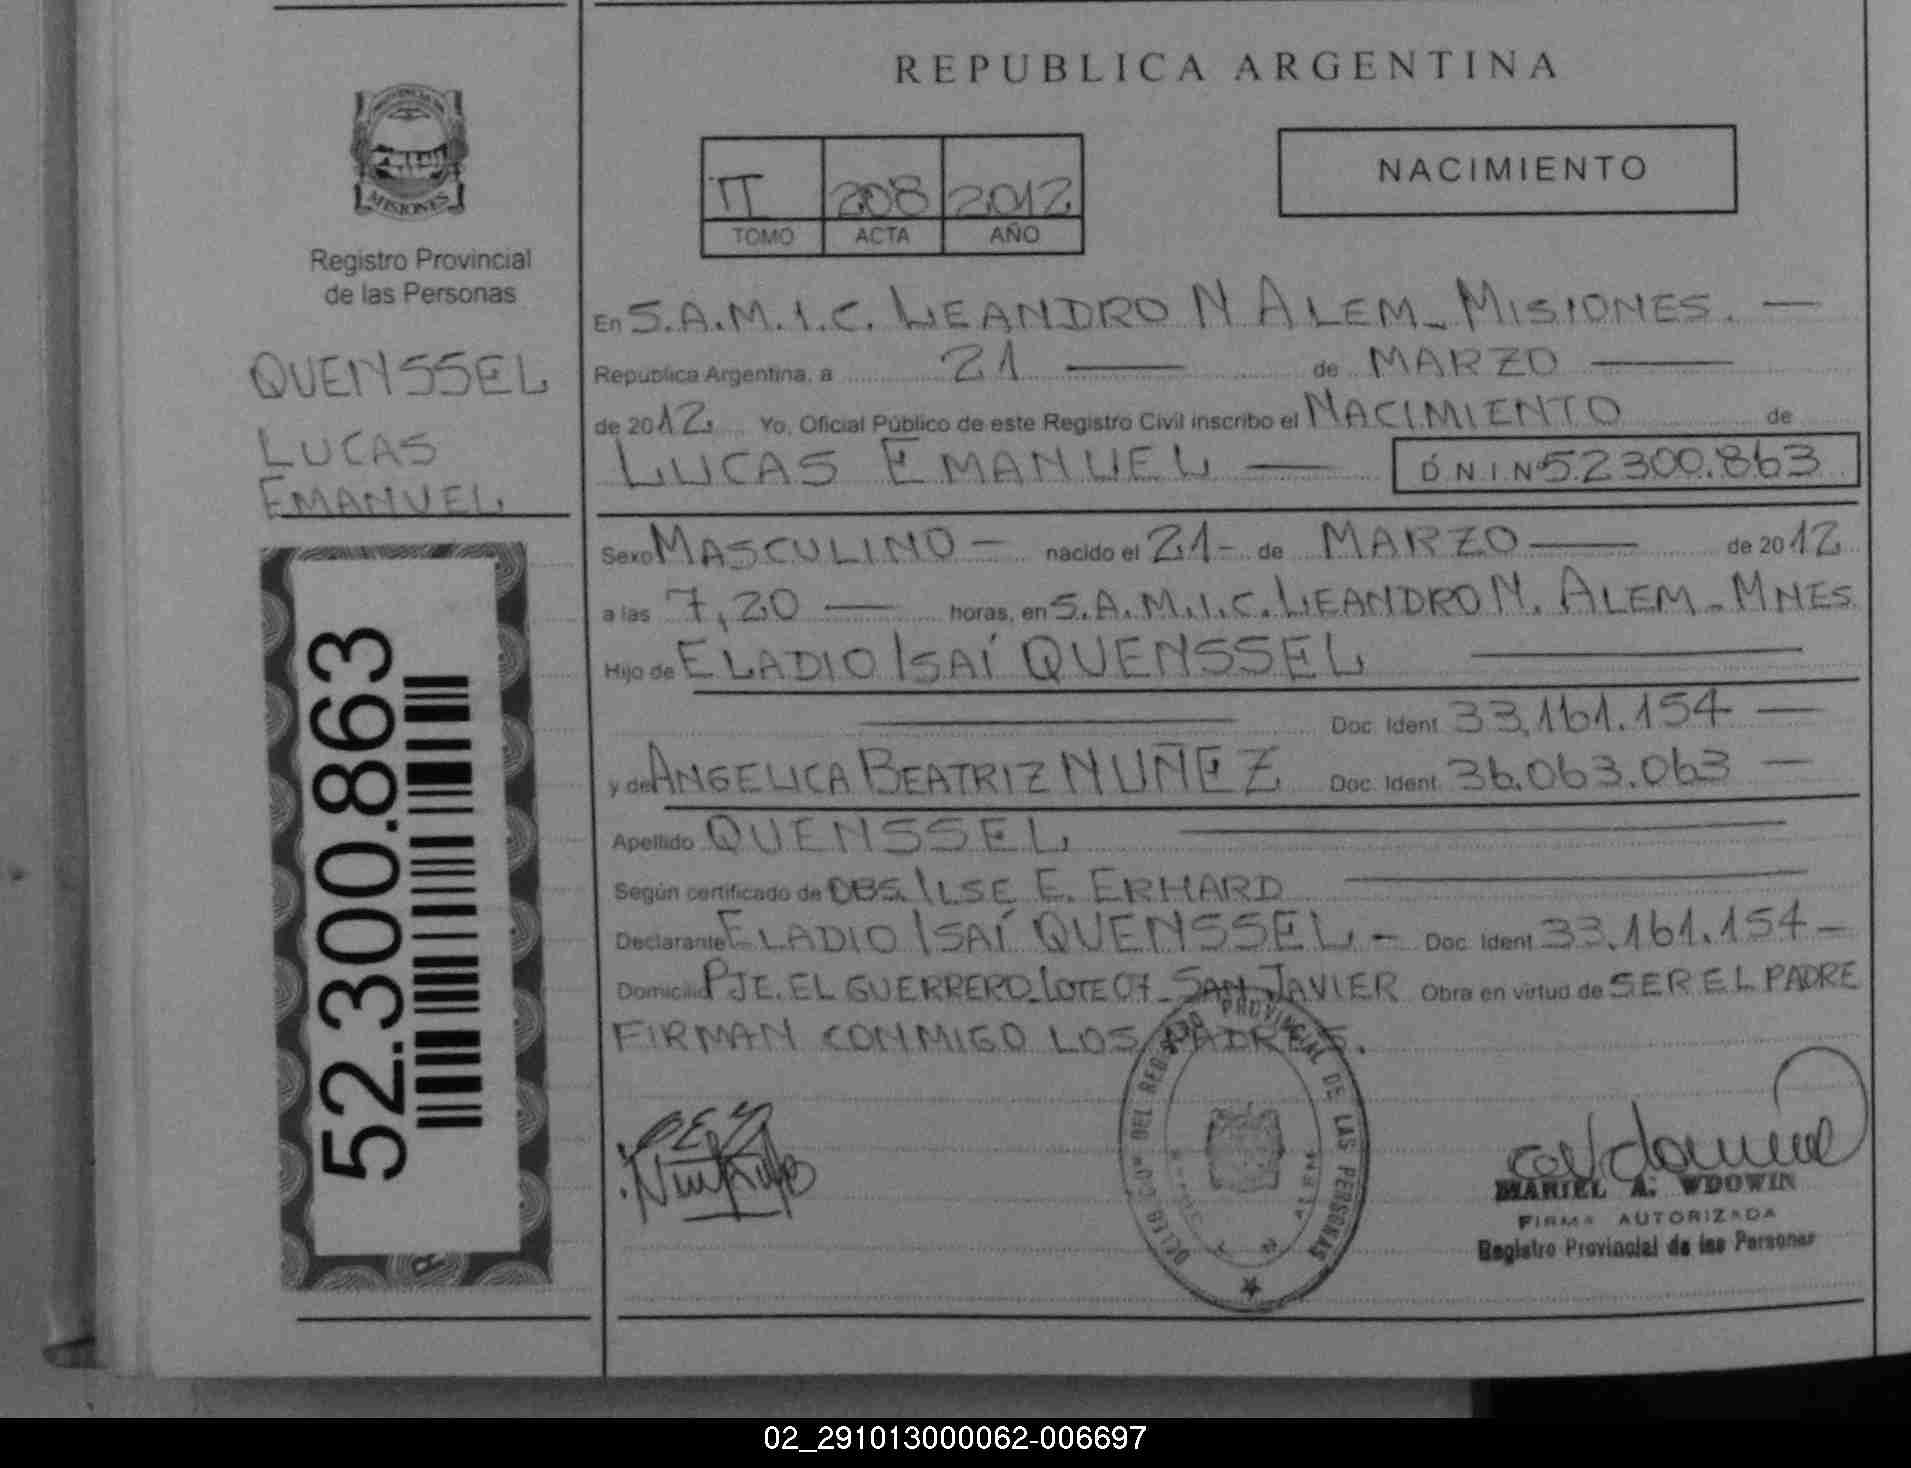 REPUBLICA ARGENTINA
PROVINCIA DE
MISIONES
Registro Provincial
de las Personas
QUENSSEL
LUCAS
EMANUEL
52.300.863
II 208 2012
TOMO ACTA AÑO
NACIMIENTO
En S.A.M.I.C. LEANDRO N ALEM - MISIONES. —
Republica Argentina, a 21 — de MARZO —
de 2012 Yo, Oficial Público de este Registro Civil inscribo el NACIMIENTO de
LUCAS EMANUEL — D.N.I.Nº 52.300.863
Sexo MASCULINO — nacido el 21 - de MARZO — de 2012
a las 7,20 — horas, en S.A.M.I.C. LEANDRO N. ALEM - MNES.
Hijo de ELADIO ISAÍ QUENSSEL —
— Doc. Ident. 33.161.154 —
y de ANGELICA BEATRIZ NUÑEZ Doc. Ident. 36.063.063 —
Apellido QUENSSEL —
Según certificado de OBS. ILSE E. ERHARD —
Declarante ELADIO ISAÍ QUENSSEL - Doc. Ident. 33.161.154 -
Domicilio PJE. EL GUERRERO - LOTE 07 - SAN JAVIER Obra en virtud de SER EL PADRE
FIRMAN CONMIGO LOS PADRES.
DEL REGISTRO PROVINCIAL DE LAS PERSONAS
MARIEL A. WDOWIN
FIRMA AUTORIZADA
Registro Provincial de las Personas
02_291013000062-006697